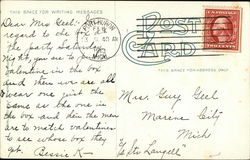 THIS SPACE FOR WRITING MESSAGES
POST
CARD
THIS SPACE FOR ADDRESS ONLY
Dear Mrs Geel:- In
regard to the
the party Saturday
night, you are to
valentine in the box
and this we are all
wear one just the
same as the one in
the box and then the men
are to match valentines
to see whose box they
get. Bessie K-
MICH
Mrs. Guy Geel
Marine City
Mich